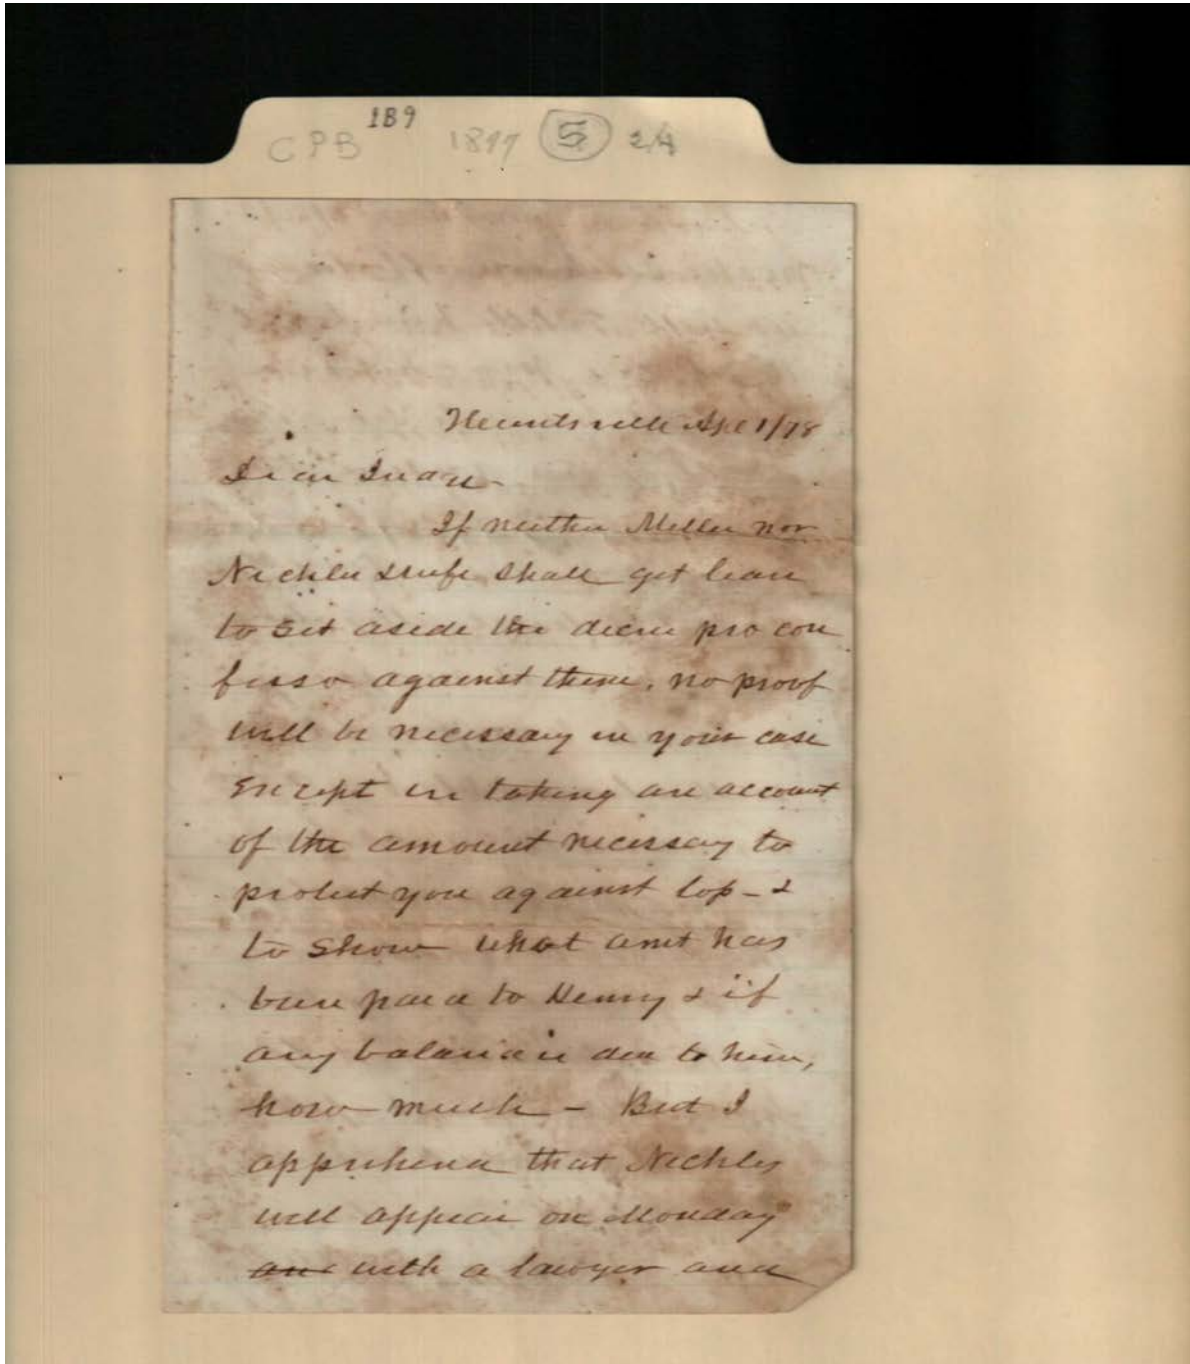 CPB 1B9 1877 5 2/4
Huntsville Apl 1/78
Dear Susan-
If neither Miller nor
Nickles & wife shall get leave
to set aside the decree pro con
fesso against them, no proof
will be necessary in your case
Except in taking an account
of the amount necessary to
protect you against loss - &
to show what amt has
been paid to Henry & if
any balance is due to him,
how much - But I
apprehend that Nickles
will appear on Monday
and with a lawyer and